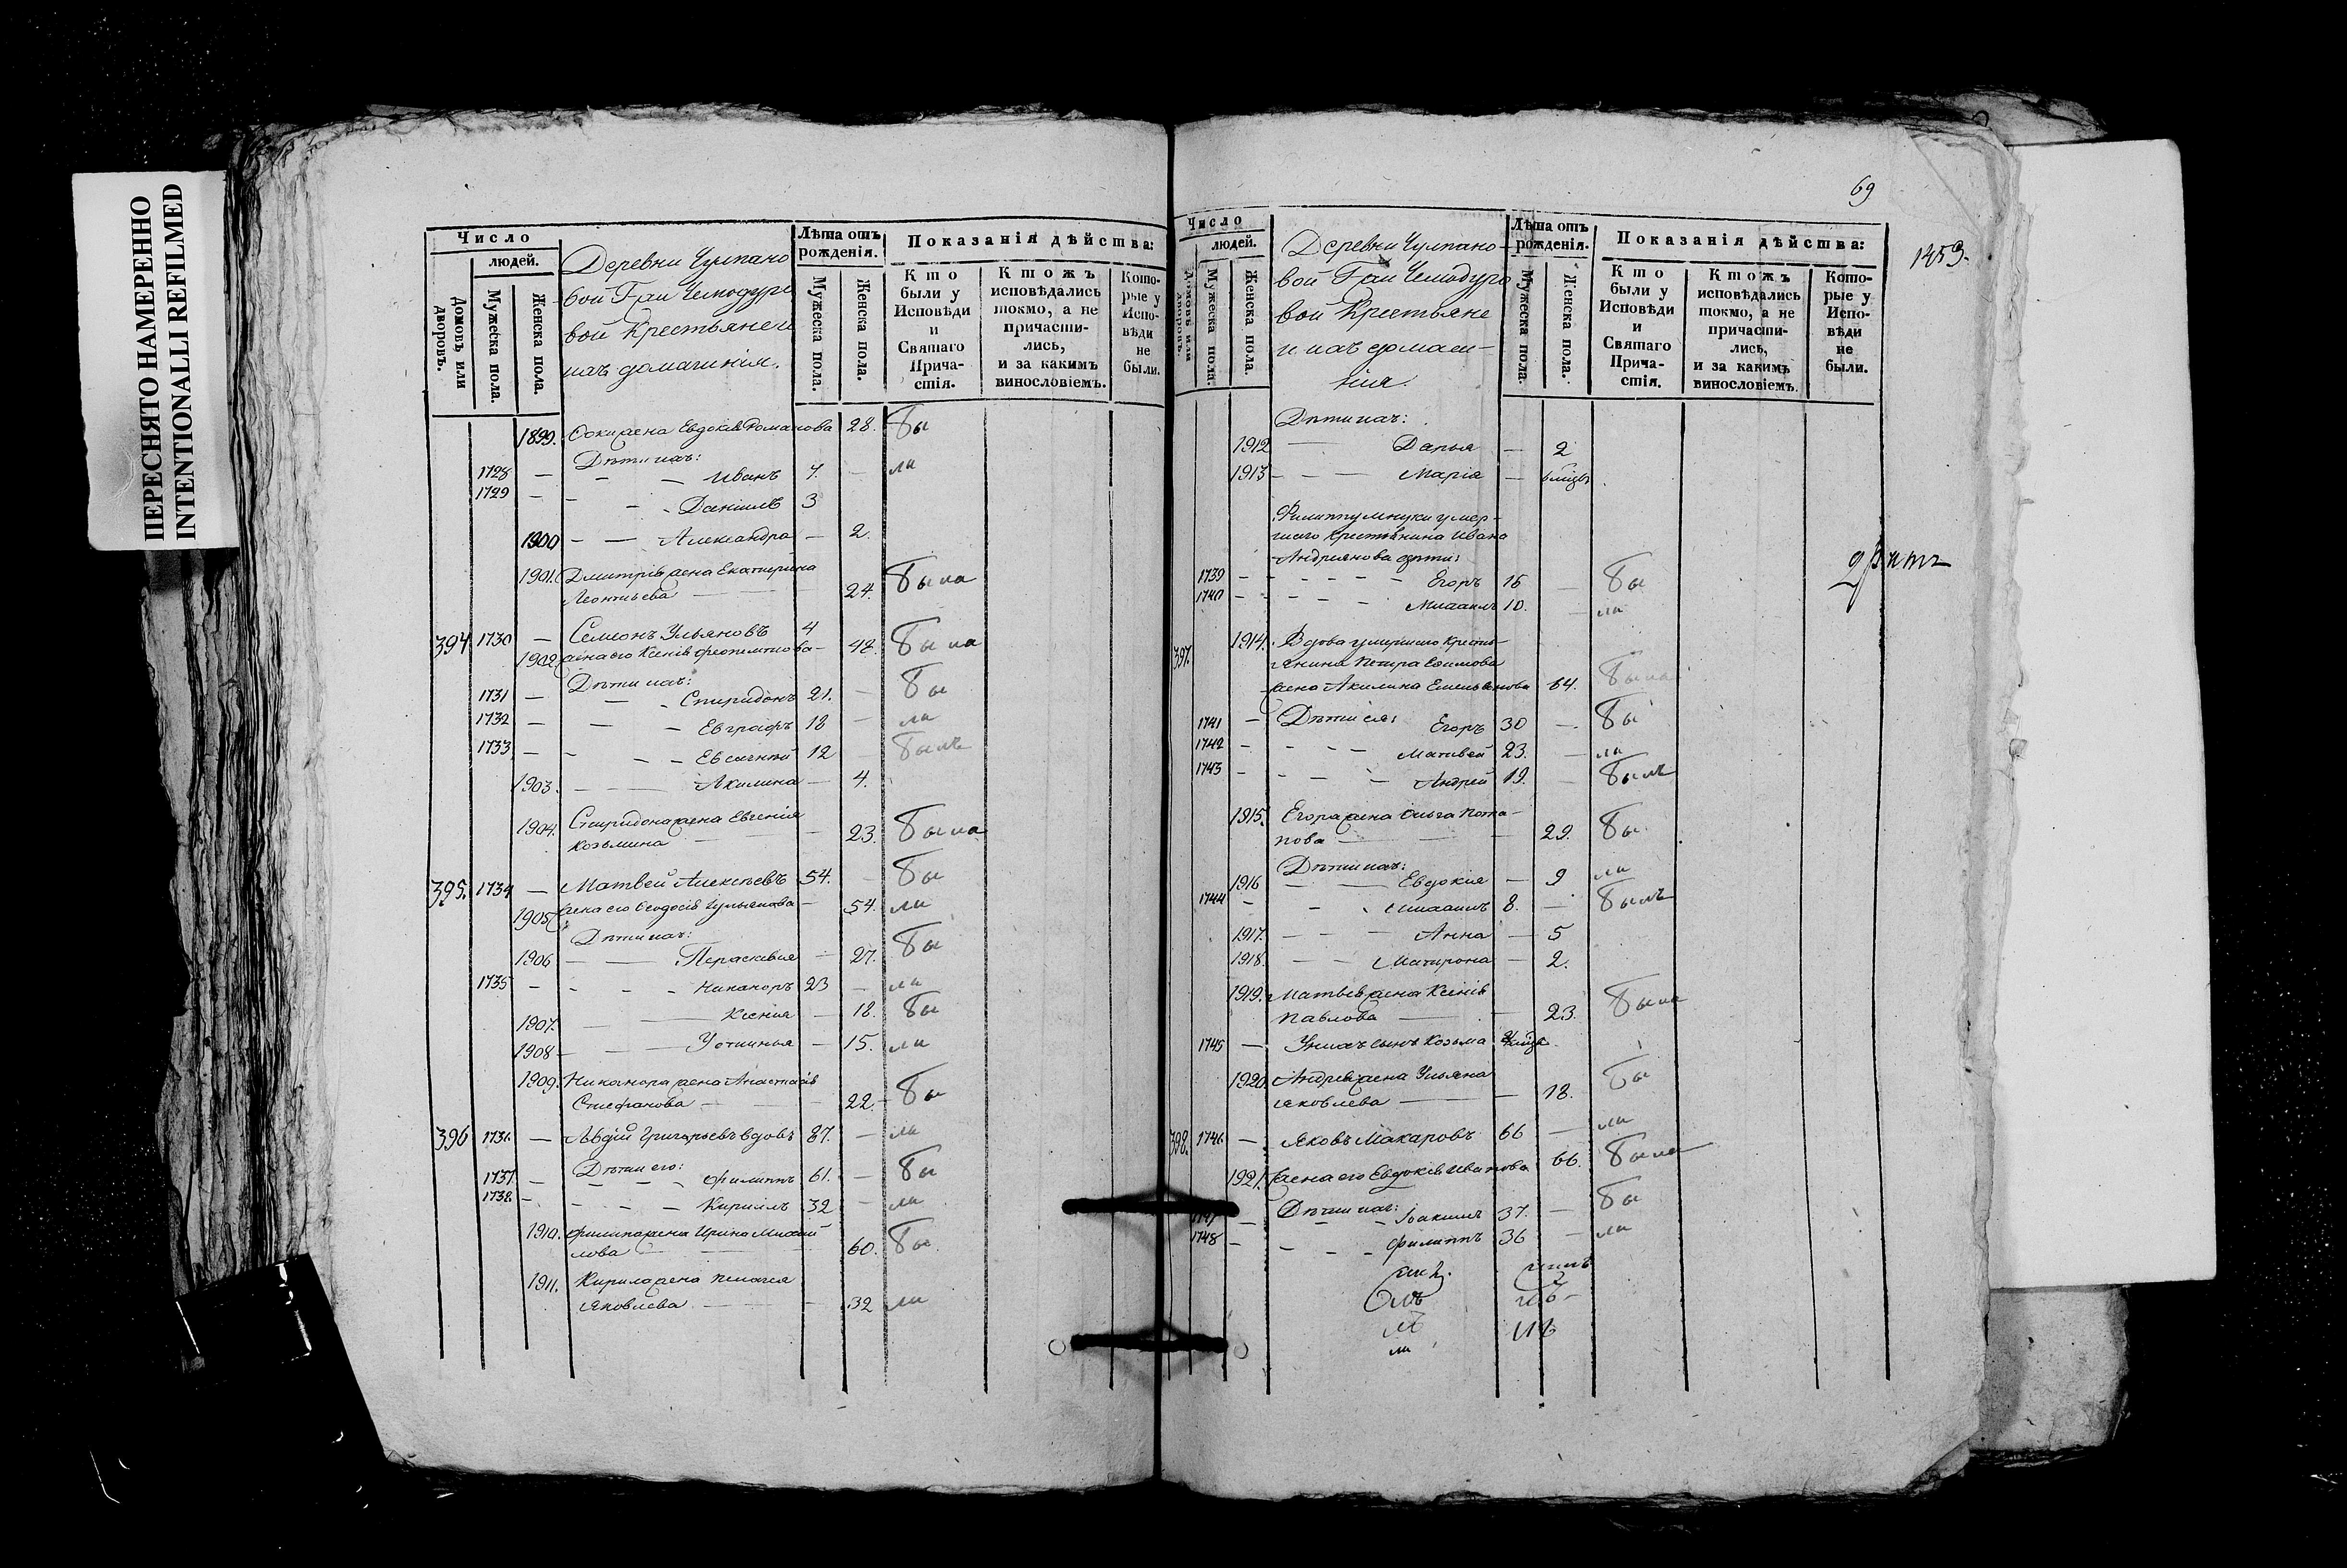 ПЕРЕСНЯТО НАМЕРЕННО
INTENTIONALLI REFILMED
Число
людей.
Домовъ или дворовъ.
Мужеска пола.
Женска пола.
Деревни Чулпано
вой Гаи Чемодуро
вой Крестьяне и
ихъ домашнія.
Лѣта отъ рожденія.
Мужеска пола.
Женска пола.
Показанія дѣйства:
Кто были у Исповѣди и Святаго Причастія.
Ктожъ исповѣдались токмо, а не причастились, и за какимъ винословіемъ.
Которые у Исповѣди не были.
1899. жена Евдокія Романова 28. Бы
Дѣти ихъ:
1728 — Иванъ 7. — ли
1729 — Даніилъ 3
1900 — Александра — 2.
1901. Дмитрія жена Екатерина
Леонтьева — 24. Была
394 1730 — Семионъ Ульяновъ 4
1902 жена его Ксенія — 48. Была
Дѣти ихъ:
1731 — Спиридонъ 21. — Бы
1732 — Евграфъ 18 — ли
1733 — Евсигній 12 — Былъ
1903. — Акилина — 4.
1904. Спиридона жена Евгенія
Козьмина — 23. Была
395. 1734 — Матвей Алексѣевъ 54. — Бы
1905 жена его Ѳеодосія — 54. ли
Дѣти ихъ:
1906 — Параскевия — 27. Бы
1735 — Никаноръ 23 — ли
1907. — Ксения — 18. Бы
1908 — Устинья — 15. ли
1909. Никанора жена Анастасія
Стефанова — 22. Бы
396 1736 — Авдій Григорьевъ вдовъ 87. — ли
Дѣти его:
1737 — Филиппъ 61. — Бы
1738. — Кириллъ 32 — ли
1910. Филиппа жена Ирина Михай
лова — 60. Бы
1911. Кирила жена Пелагея
Яковлева — 32 ли
69
1459.
Число
людей.
Домовъ или дворовъ.
Мужеска пола.
Женска пола.
Деревни Чулпано-
вой Гаи Чемодуро
вой Крестьяне
и ихъ домаш-
нія.
Лѣта отъ рожденія.
Мужеска пола.
Женска пола.
Показанія дѣйства:
Кто были у Исповѣди и Святаго Причастія.
Ктожъ исповѣдались токмо, а не причастились, и за какимъ винословіемъ.
Которые у Исповѣди не были.
Дѣти ихъ:
1912 — Дарья — 2
1913 — Марія —
Филиппу внуки умер-
шаго Крестьянина Ивана
Андреянова дѣти:
1739 — Егоръ 16 — Бы
1740 — Михаилъ 10. — ли
397. 1914. Вдова умершаго Кресть-
янина Петра Ефимова
жена Акилина Емельянова 64. Была
Дѣти ея:
1741 — Егоръ 30 — Бы
1742 — Матвей 23. — ли
1743 — Андрей 19. — Былъ
1915. Егора жена Ольга Пота-
пова — 29. Бы
Дѣти ихъ:
1916 — Евдокия — 9 ли
1744 — Михаилъ 8. — Былъ
1917. — Анна — 5
1918. — Матрона — 2.
1919. Матвея жена Ксенія
Павлова — 23. Была
1745 — У нихъ сынъ Козьма
1920. Андрея жена Ульяна
Яковлева — 18. Бы
398. 1746. — Яковъ Макаровъ 66 — ли
1921. жена его Евдокія Иванова 66. Была
Дѣти ихъ:
1747 — Іоакимъ 37. — Бы
1748 — Филиппъ 36 — ли